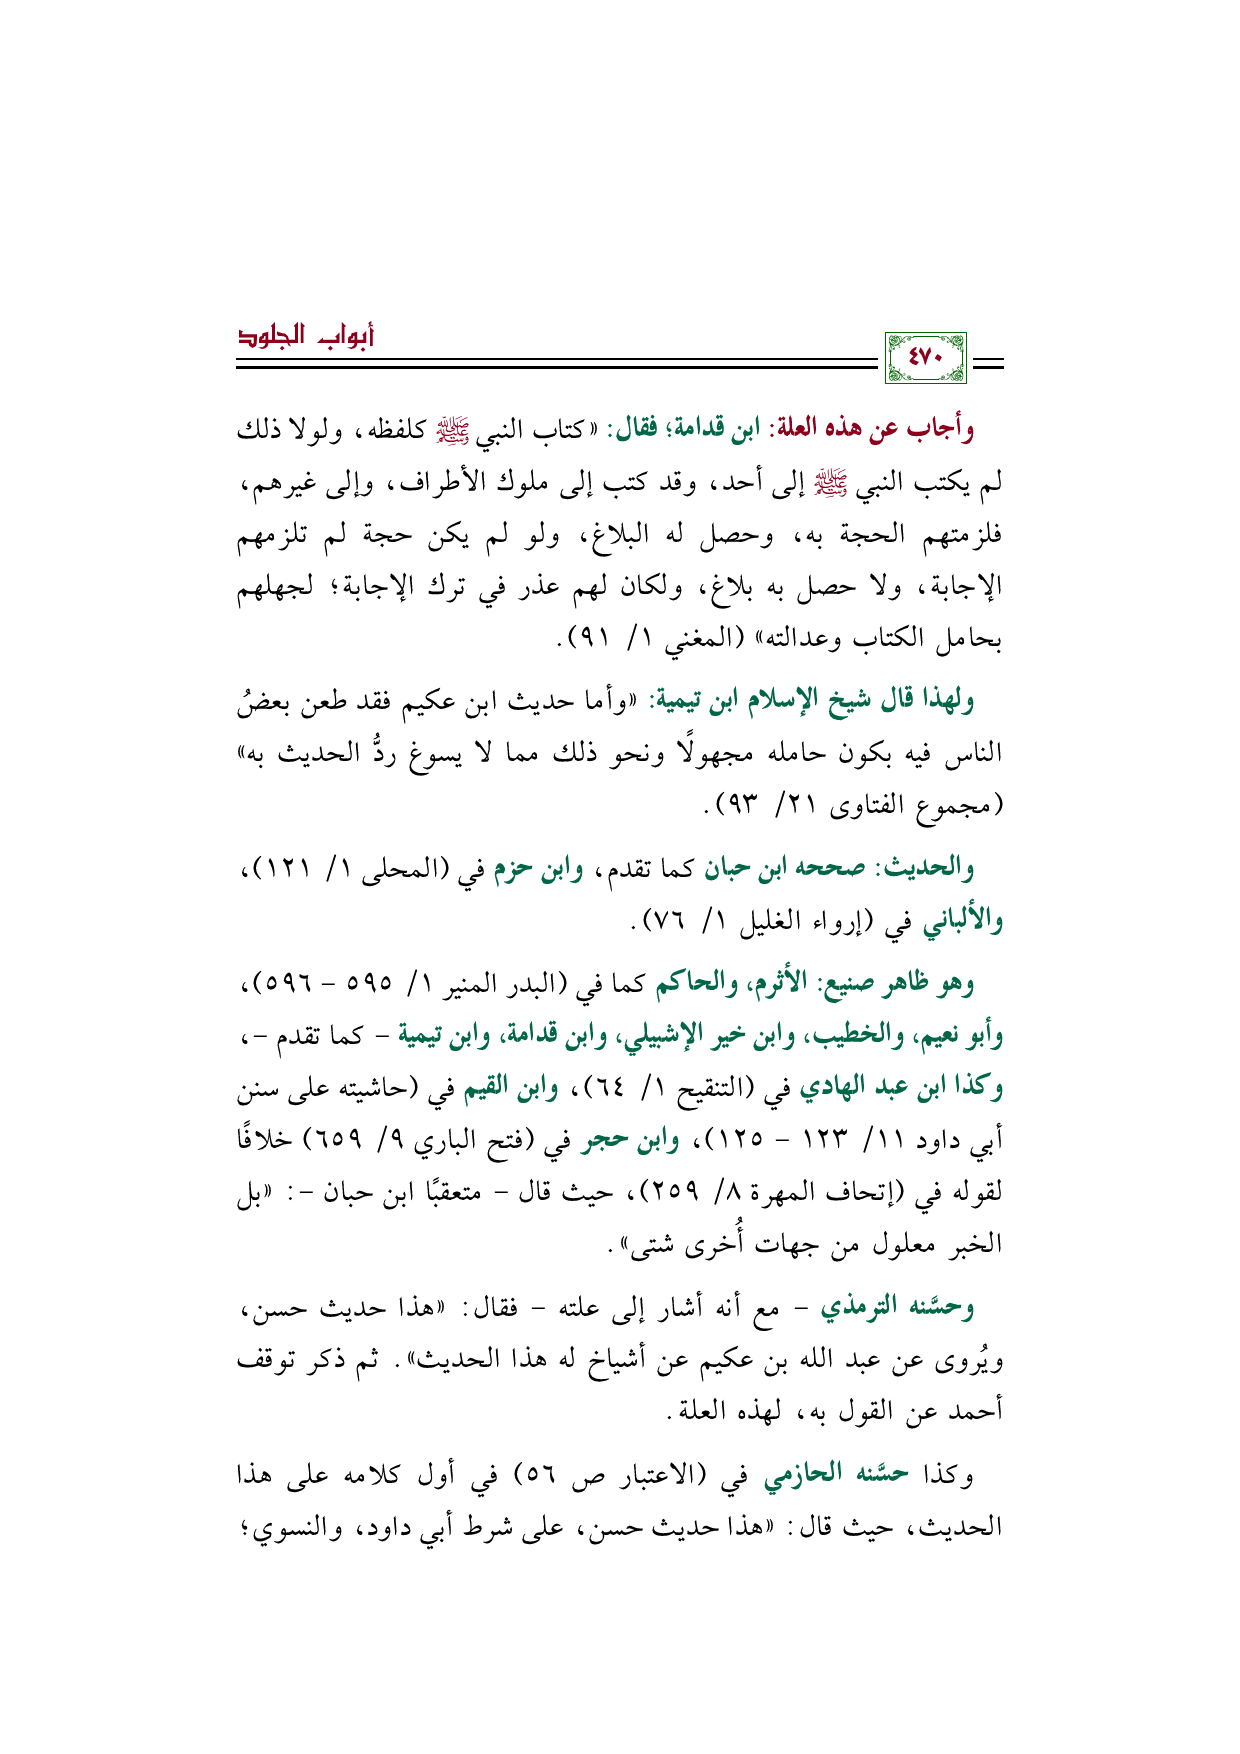 أبواب الجلود
٤٧٠
وأجاب عن هذه العلة: ابن قدامة؛ فقال: «كتاب النبي ﷺ كلفظه، ولولا ذلك
لم يكتب النبي ﷺ إلى أحد، وقد كتب إلى ملوك الأطراف، وإلى غيرهم،
فلزمتهم الحجة به، وحصل له البلاغ، ولو لم يكن حجة لم تلزمهم
الإجابة، ولا حصل به بلاغ، ولكان لهم عذر في ترك الإجابة؛ لجهلهم
بحامل الكتاب وعدالته» (المغني ١/ ٩١).
ولهذا قال شيخ الإسلام ابن تيمية: «وأما حديث ابن عكيم فقد طعن بعضُ
الناس فيه بكون حامله مجهولًا ونحو ذلك مما لا يسوغ ردُّ الحديث به»
(مجموع الفتاوى ٢١/ ٩٣).
والحديث: صححه ابن حبان كما تقدم، وابن حزم في (المحلى ١/ ١٢١)،
والألباني في (إرواء الغليل ١/ ٧٦).
وهو ظاهر صنيع: الأثرم، والحاكم كما في (البدر المنير ١/ ٥٩٥ - ٥٩٦)،
وأبو نعيم، والخطيب، وابن خير الإشبيلي، وابن قدامة، وابن تيمية - كما تقدم -،
وكذا ابن عبد الهادي في (التنقيح ١/ ٦٤)، وابن القيم في (حاشيته على سنن
أبي داود ١١/ ١٢٣ - ١٢٥)، وابن حجر في (فتح الباري ٩/ ٦٥٩) خلافًا
لقوله في (إتحاف المهرة ٨/ ٢٥٩)، حيث قال - متعقبًا ابن حبان -: «بل
الخبر معلول من جهات أُخرى شتى».
وحسَّنه الترمذي - مع أنه أشار إلى علته - فقال: «هذا حديث حسن،
ويُروى عن عبد الله بن عكيم عن أشياخ له هذا الحديث». ثم ذكر توقف
أحمد عن القول به، لهذه العلة.
وكذا حسَّنه الحازمي في (الاعتبار ص ٥٦) في أول كلامه على هذا
الحديث، حيث قال: «هذا حديث حسن، على شرط أبي داود، والنسوي؛